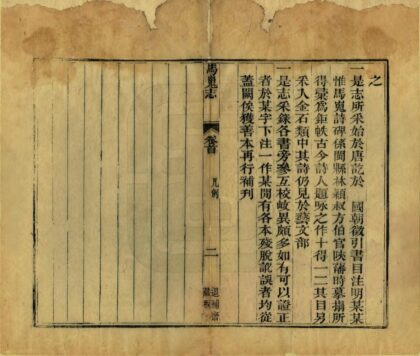 之
一是志所采始於唐訖於　國朝徵引書目注明某某
惟馬嵬詩碑係閩縣林穎叔方伯官陝藩時摹搨所
得彙為鉅軼古今詩人題咏之作十得一二其目另
采入金石類中其詩仍見於藝文部
一是志采錄各書旁參互校歧異頗多如有可以證正
者於某字下注一作某間有各本殘脫訛誤者均從
蓋闕俟獲善本再行補刊
馬嵬志
卷首
凡例
二
退補齋
藏板